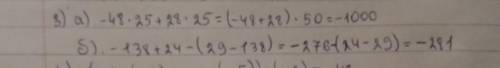 3) а) -48·25+28·25=(-48+28)·50=-1000
б). -138+24-(29-138)=-276-(24-29)=-281